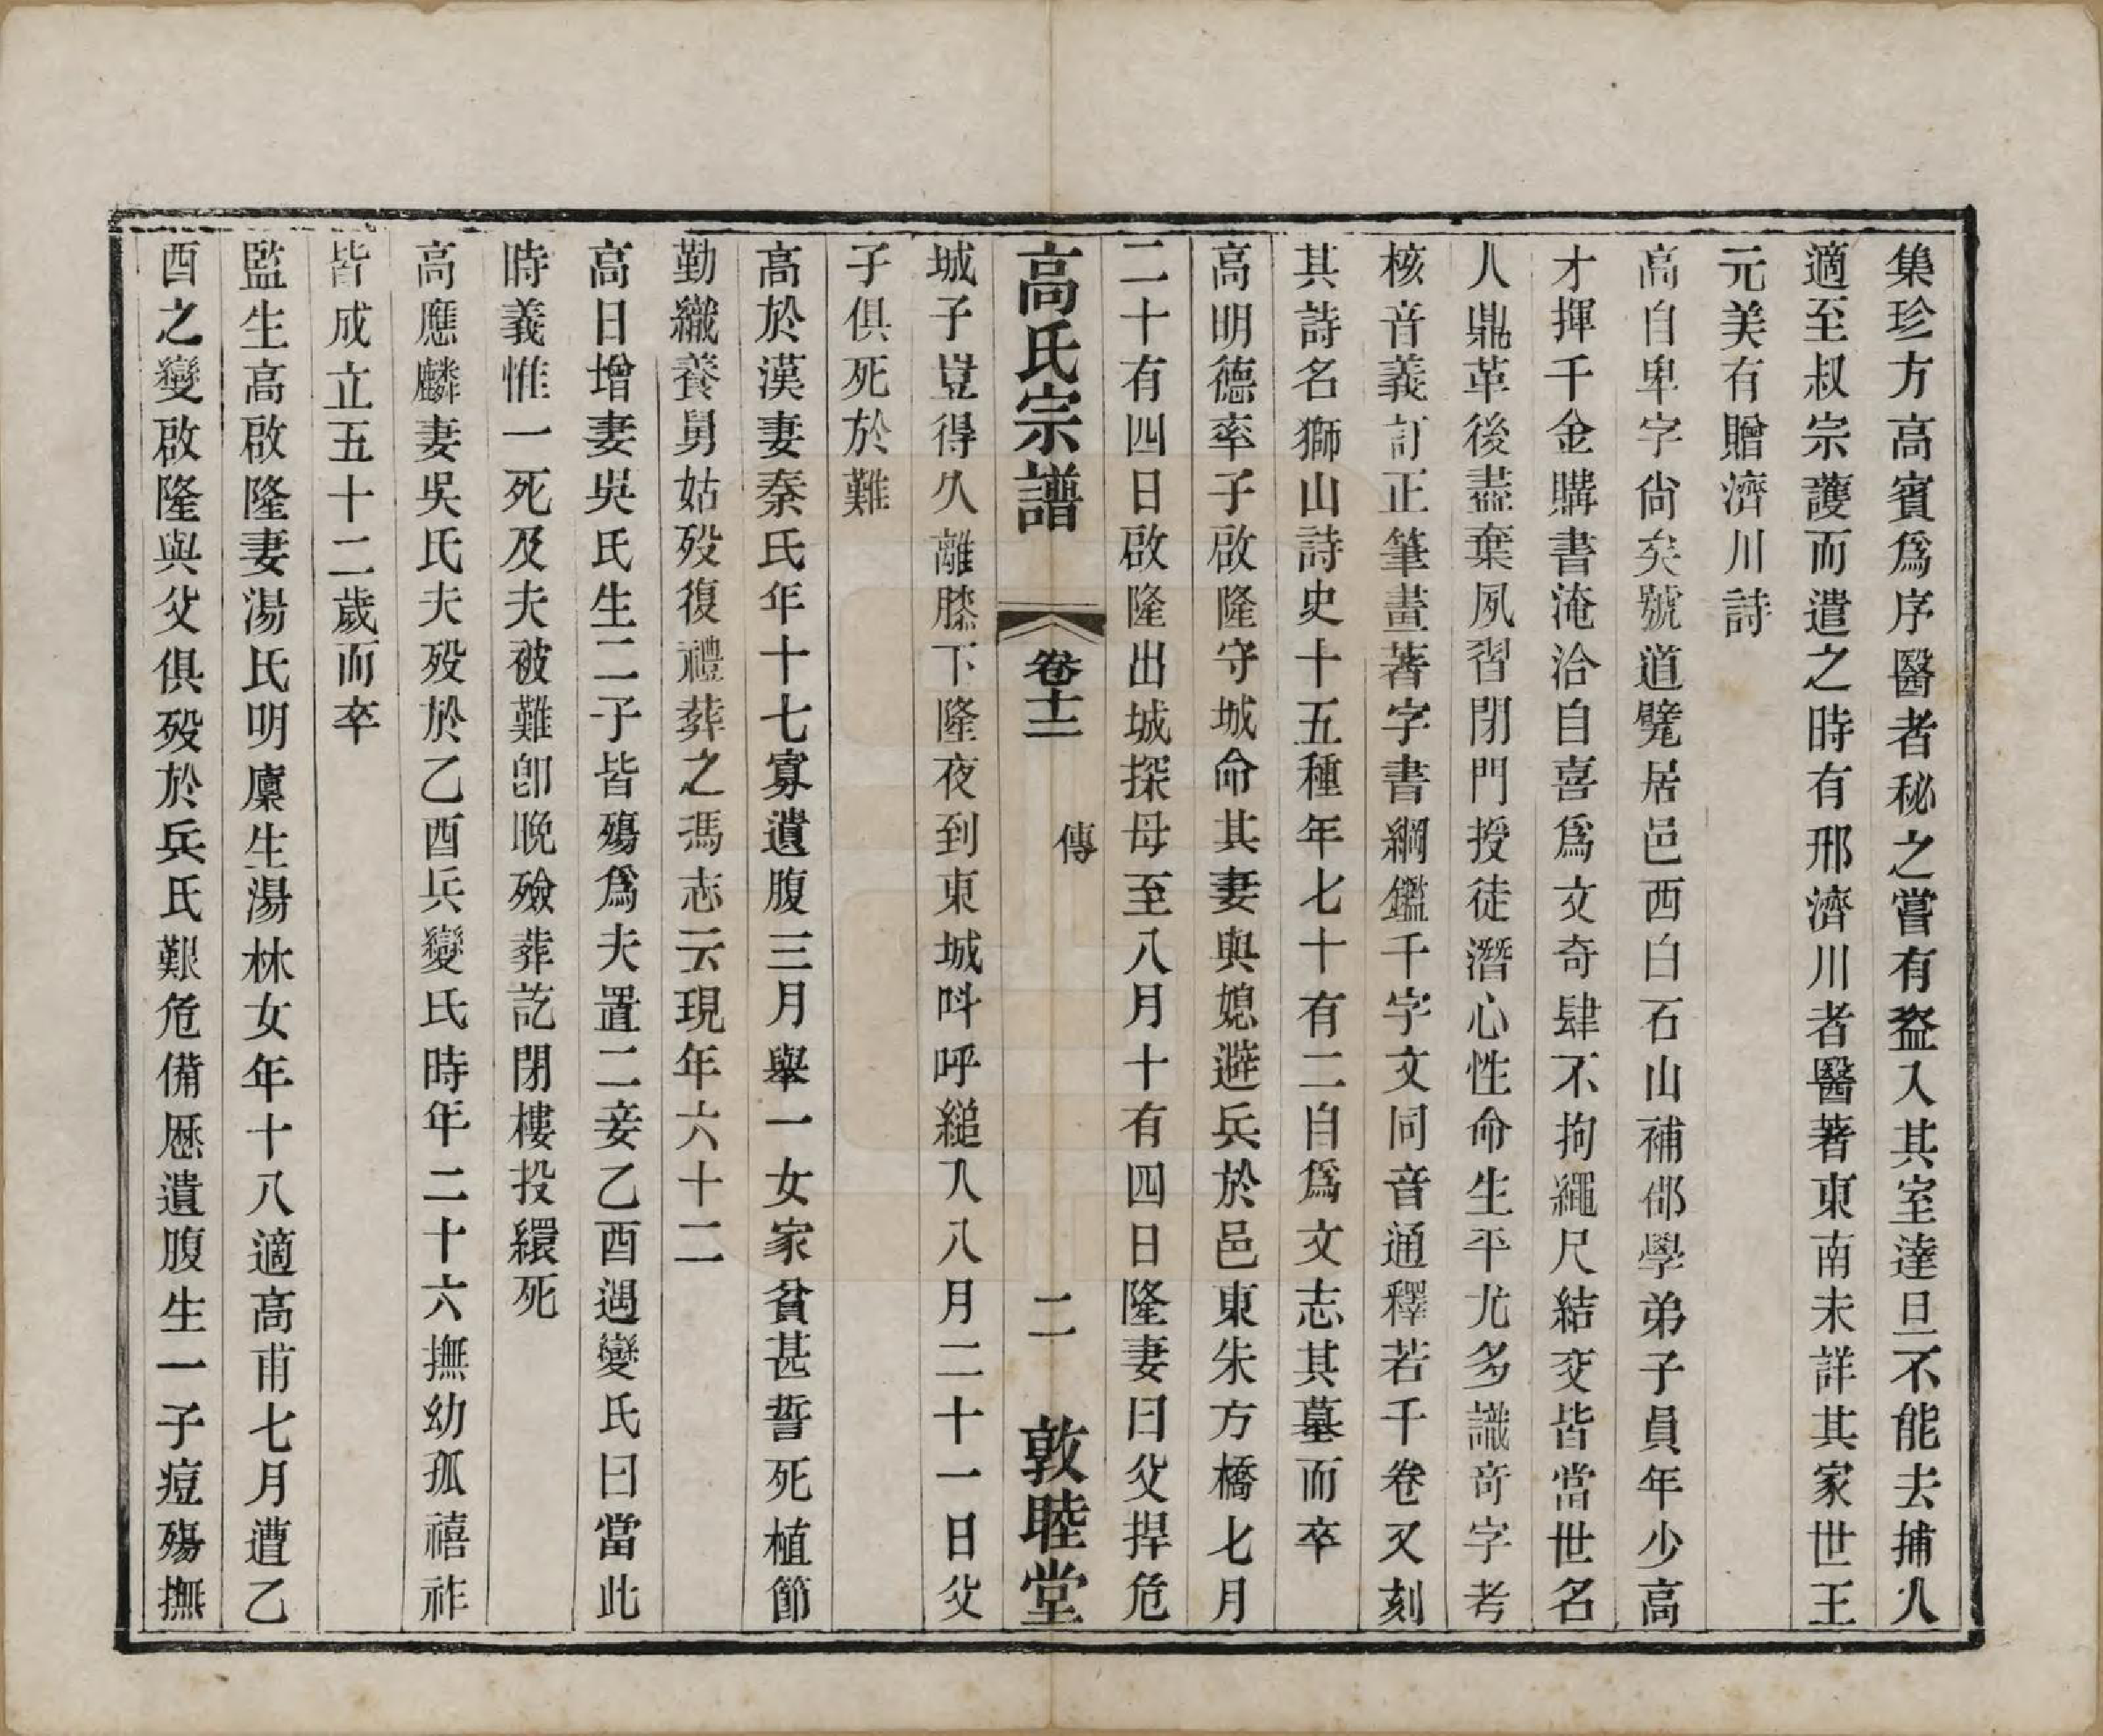 集珍方高賓爲序醫者秘之嘗有盜入其室達旦不能去捕人
適至叔宗護而遣之時有邢濟川者醫著東南未詳其家世王
元美有贈濟川詩
高自卑字尙矣號道凳居邑西白石山補邵學弟子員年少高
才揮千金購書淹洽自喜爲文奇肆不拘繩尺結交皆當世名
人鼎革後盡棄夙習閉門授徒潛心性命生平尤多識奇字考
核音義訂正筆畫著字書綱鑑千字文同音通釋若干卷又刻
其詩名獅山詩史十五種年七十有二自爲文志其墓而卒
高明德率子啟隆守城命其妻與媳避兵於邑東朱方橋七月
二十有四日啟隆出城探母至八月十有四日隆妻曰父捍危
高氏宗譜 卷十二 傳 二 敦睦堂
城子豈得久離膝下隆夜到東城呌呼縋入八月二十一日父
子俱死於難
高於漢妻秦氏年十七寡遺腹三月舉一女家貧甚誓死植節
勤織養舅姑歿復禮葬之馮志云現年六十二
高日增妻吳氏生二子皆殤爲夫置二妾乙酉遇變氏曰當此
時義惟一死及夫被難卽晚殮葬訖閉樓投繯死
高應麟妻吳氏夫歿於乙酉兵變氏時年二十六撫幼孤禧祚
皆成立五十二歲而卒
監生高啟隆妻湯氏明廩生湯林女年十八適高甫七月遭乙
酉之變啟隆與父俱歿於兵氏艱危備歷遺腹生一子痘殤撫